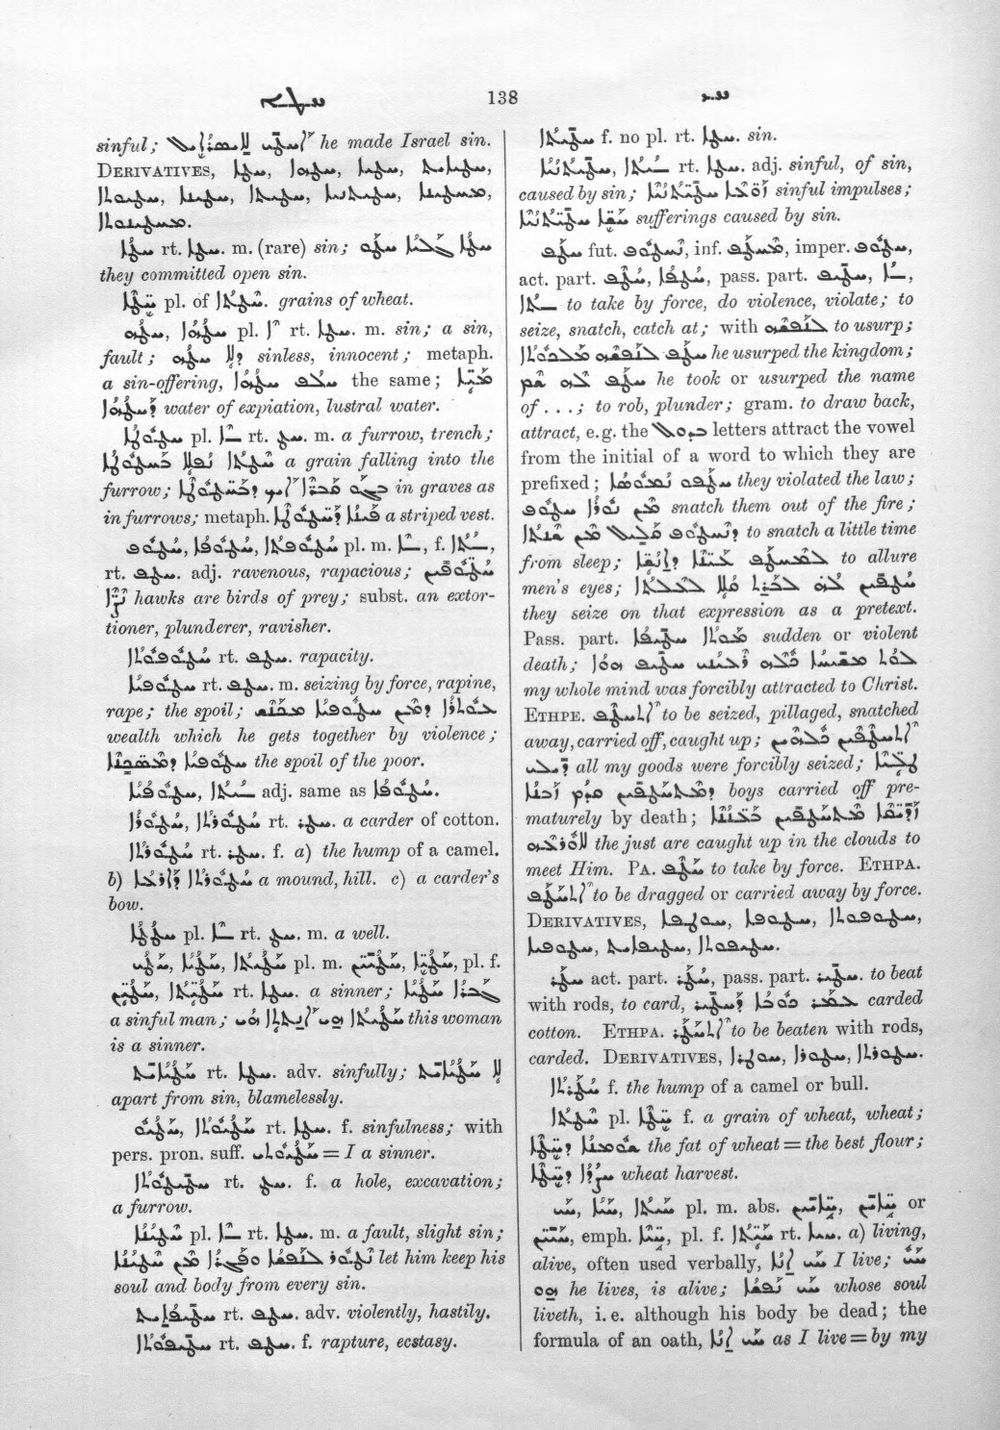 ܚܛܐ 138 ܚܝ
sinful; ܐܚܛܝ ܠܐܝܣܪܐܝܠ he made Israel sin.
DERIVATIVES, ܚܛܐ, ܚܛܗܐ, ܚܛܝܐ, ܚܛܝܐܝܬ,
ܚܛܝܘܬܐ, ܚܛܝܢܐ, ܚܛܝܬܐ, ܚܛܝܬܢܝܐ, ܡܚܛܝܢܐ,
ܡܚܛܝܢܘܬܐ.
ܚܛܐ rt. ܚܛܐ. m. (rare) sin; ܚܛܐ ܓܠܝܐ ܚܛܘ
they committed open sin.
ܚܛܐ pl. of ܚܛܬܐ. grains of wheat.
ܚܛܗ, ܚܛܗܐ pl. ܐ rt. ܚܛܐ. m. sin; a sin,
fault; ܕܠܐ ܚܛܗ sinless, innocent; metaph.
a sin-offering, ܚܠܦ ܚܛܗܐ the same; ܡܝܐ
ܕܚܛܗܐ water of expiation, lustral water.
ܚܛܘܛܐ pl. ܐ rt. ܚܛ. m. a furrow, trench;
ܚܛܬܐ ܢܦܠܐ ܒܚܛܘܛܐ a grain falling into the
furrow; ܒܓܘ ܩܒܪܐ ܐܝܟ ܕܒܚܛܘܛܐ in graves as
in furrows; metaph. ܦܝܢܐ ܕܚܛܘܛܐ a striped vest.
ܚܛܘܦ, ܚܛܘܦܐ, ܚܛܘܦܬܐ pl. m. ܐ, f. ܬܐ,
rt. ܚܛܦ. adj. ravenous, rapacious; ܚܛܘܦܝܢ
ܢܨܐ hawks are birds of prey; subst. an extor-
tioner, plunderer, ravisher.
ܚܛܘܦܘܬܐ rt. ܚܛܦ. rapacity.
ܚܛܘܦܝܐ rt. ܚܛܦ. m. seizing by force, rapine,
rape; the spoil; ܥܘܬܪܐ ܕܡܢ ܚܛܘܦܝܐ ܡܟܢܫ
wealth which he gets together by violence;
ܚܛܘܦܝܐ ܕܡܣܟܢܐ the spoil of the poor.
ܚܛܘܦܢܐ, ܬܐ adj. same as ܚܛܘܦܐ.
ܚܛܘܪܐ, ܚܛܘܪܬܐ rt. ܚܛܪ. a carder of cotton.
ܚܛܘܪܬܐ rt. ܚܛܪ. f. a) the hump of a camel.
b) ܚܛܘܪܬܐ ܕܐܪܥܐ a mound, hill. c) a carder's
bow.
ܚܛܛܐ pl. ܐ rt. ܚܛ. m. a well.
ܚܛܝ, ܚܛܝܐ, ܚܛܝܬܐ pl. m. ܚܛܝܢ, ܚܛܝܐ, pl. f.
ܚܛܝܢ, ܚܛܝܬܐ rt. ܚܛܐ. a sinner; ܓܒܪܐ ܚܛܝܐ
a sinful man; ܗܝ ܐܢܬܬܐ ܗܝ ܚܛܝܬܐ this woman
is a sinner.
ܚܛܝܐܝܬ rt. ܚܛܐ. adv. sinfully; ܠܐ ܚܛܝܐܝܬ
apart from sin, blamelessly.
ܚܛܝܘ, ܚܛܝܘܬܐ rt. ܚܛܐ. f. sinfulness; with
pers. pron. suff. ܚܛܝܘܬܝ = I a sinner.
ܚܛܝܛܘܬܐ rt. ܚܛ. f. a hole, excavation;
a furrow.
ܚܛܝܢܐ pl. ܐ rt. ܚܛܐ. m. a fault, slight sin;
ܢܛܘܪ ܠܢܦܫܐ ܘܦܓܪܐ ܡܢ ܚܛܝܢܐ let him keep his
soul and body from every sin.
ܚܛܝܦܐܝܬ rt. ܚܛܦ. adv. violently, hastily.
ܚܛܝܦܘܬܐ rt. ܚܛܦ. f. rapture, ecstasy.
ܚܛܝܬܐ f. no pl. rt. ܚܛܐ. sin.
ܚܛܝܬܢܝܐ, ܬܐ rt. ܚܛܐ. adj. sinful, of sin,
caused by sin; ܙܘܥܐ ܚܛܝܬܢܝܐ sinful impulses;
ܚܫܐ ܚܛܝܬܢܝܐ sufferings caused by sin.
ܚܛܦ fut. ܢܚܛܘܦ, inf. ܡܚܛܦ, imper. ܚܛܘܦ,
act. part. ܚܛܦ, ܚܛܦܐ, pass. part. ܚܛܝܦ, ܐ,
ܬܐ to take by force, do violence, violate; to
seize, snatch, catch at; with ܠܢܦܫܗ to usurp;
ܚܛܦ ܠܢܦܫܗ ܡܠܟܘܬܐ he usurped the kingdom;
ܚܛܦ ܠܗ ܫܡ he took or usurped the name
of . . .; to rob, plunder; gram. to draw back,
attract, e.g. the ܒܕܘܠ letters attract the vowel
from the initial of a word to which they are
prefixed; ܚܛܦܘ ܢܡܘܣܐ they violated the law;
ܚܛܘܦ ܡܢ ܢܘܪܐ snatch them out of the fire;
ܕܢܚܛܘܦ ܩܠܝܠ ܡܢ ܫܢܬܐ to snatch a little time
from sleep; ܠܡܚܛܦ ܥܝܢܐ ܕܐܢܫܐ to allure
men's eyes; ܚܛܦܝܢ ܠܗ ܠܒܪܬ ܩܠܐ ܠܥܠܬܐ
they seize on that expression as a pretext.
Pass. part. ܡܘܬܐ ܚܛܝܦܐ sudden or violent
death; ܠܘܬ ܡܫܝܚܐ ܟܠܗ ܪܥܝܢܝ ܚܛܝܦ ܗܘܐ
my whole mind was forcibly attracted to Christ.
ETHPE. ܐܬܚܛܦ to be seized, pillaged, snatched
away, carried off, caught up; ܐܬܚܛܦܝܢ ܟܠܗܝܢ
ܕܝܠܝ all my goods were forcibly seized; ܛܠܝܐ
ܕܡܬܚܛܦܝܢ boys carried off pre-
maturely by death; ܙܕܝܩܐ ܡܬܚܛܦܝܢ ܒܥܢܢܐ
ܠܐܘܪܥܗ the just are caught up in the clouds to
meet Him. PA. ܚܛܦ to take by force. ETHPA.
ܐܬܚܛܦ to be dragged or carried away by force.
DERIVATIVES, ܚܛܘܦܐ, ܚܛܘܦܘܬܐ,
ܚܛܘܦܝܐ, ܚܛܝܦܐܝܬ, ܚܛܝܦܘܬܐ.
ܚܛܪ act. part. ܚܛܪ, pass. part. ܚܛܝܪ. to beat
with rods, to card, ܥܡܪ ܓܘܦܐ ܕܚܛܝܪ carded
cotton. ETHPA. ܐܬܚܛܪ to be beaten with rods,
carded. DERIVATIVES, ܚܘܛܪܐ, ܚܛܘܪܐ, ܚܛܘܪܬܐ.
ܚܛܪܬܐ f. the hump of a camel or bull.
ܚܛܬܐ pl. ܚܛܐ f. a grain of wheat, wheat;
ܫܘܡܢܐ ܕܚܛܐ the fat of wheat = the best flour;
ܚܨܕܐ ܕܚܛܐ wheat harvest.
ܚܝ, ܚܝܐ, ܚܝܬܐ pl. m. abs. ܚܝܝܢ, ܚܐܝܢ or
ܚܝܝܢ, emph. ܚܝܐ, pl. f. ܚܝܬܐ rt. ܚܝܐ. a) living,
alive, often used verbally, ܚܝ ܐܢܐ I live; ܚܝ
ܗܘ he lives, is alive; ܚܝ ܢܦܫܐ whose soul
liveth, i.e. although his body be dead; the
formula of an oath, ܚܝ ܐܢܐ as I live = by my